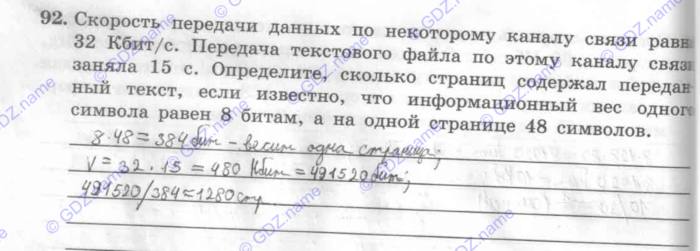 92. Скорость передачи данных по некоторому каналу связи равн
32 Кбит/с. Передача текстового файла по этому каналу связ
заняла 15 с. Определите, сколько страниц содержал передан
ный текст, если известно, что информационный вес одног
символа равен 8 битам, а на одной странице 48 символов.
8·48=384бит - весит одна страница;
V = 32 · 15 = 480 Кбит = 491520бит;
491520/384=1280стр
© GDZ.name